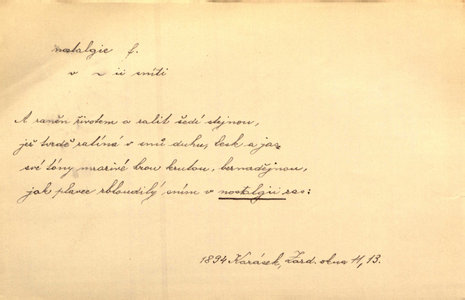 nostalgie f.
v z ii sníti
A raněn životem a zalit šedí stejnou,
jež tvrdě zatíná v snů duhu, lesk a jas
své tóny mrazivé hrou krutou, beznadějnou,
jak plavec zbloudilý sním v nostalgii zas:
1894 Karásek, Zazd. okna 11, 13.